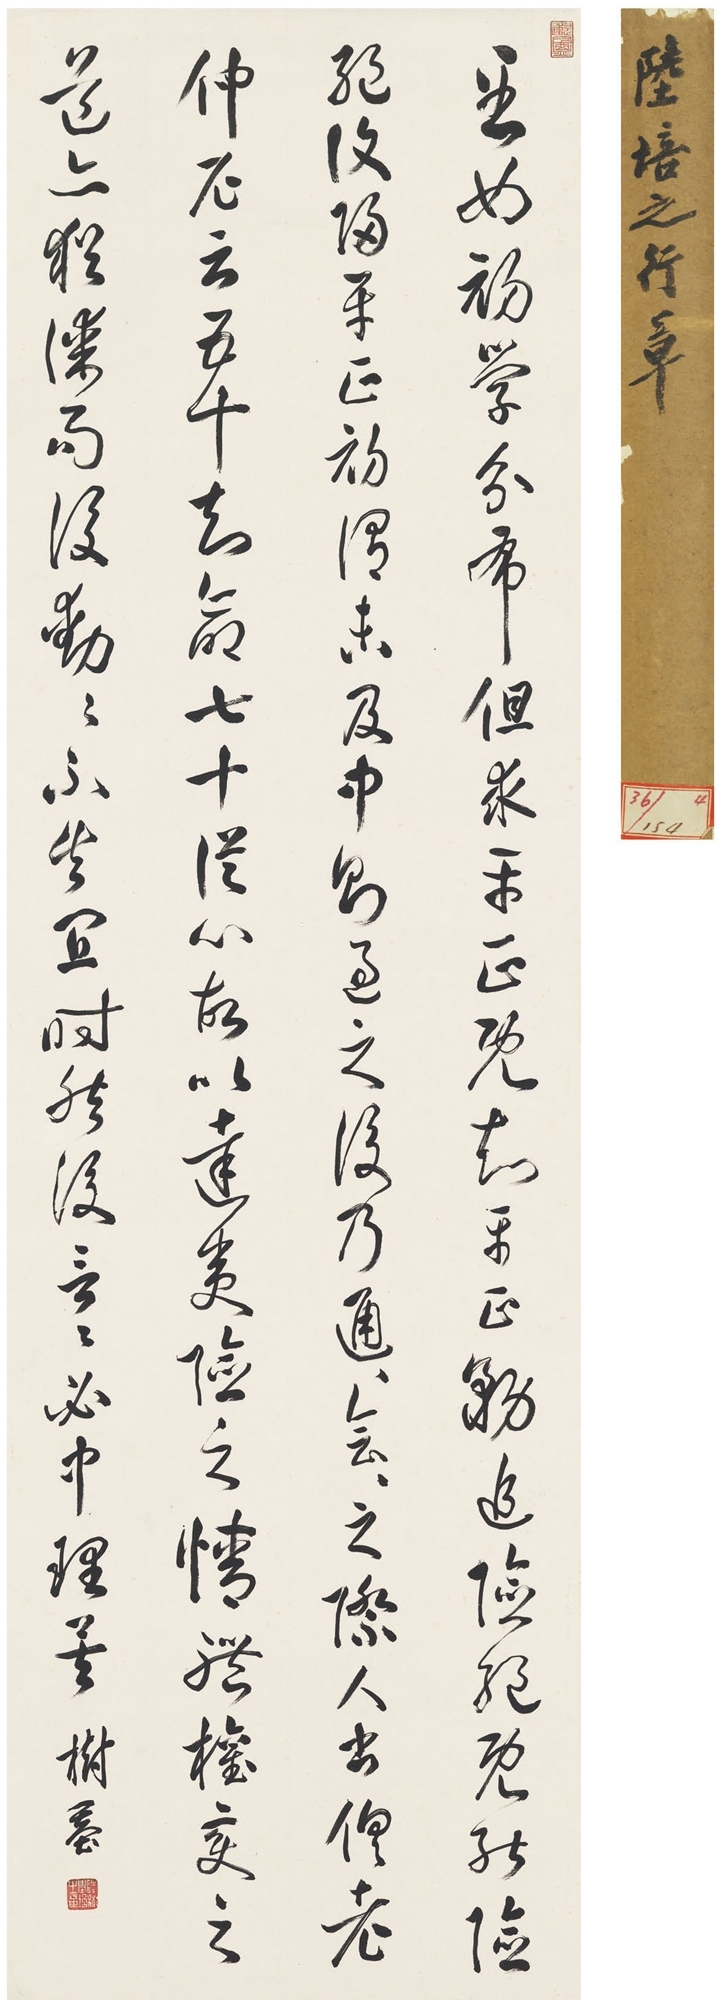 至如初學分布但求平正既知平正務追險絕既能險
絕復歸平正初謂未及中則過之後乃通〻會〻之際人書俱老
仲尼云五十知命七十從心故以達夷險之情體權變之
道亦猶謀而後動〻不失宜時然後言〻必中理矣 樹
陸培之行章
36/154 4